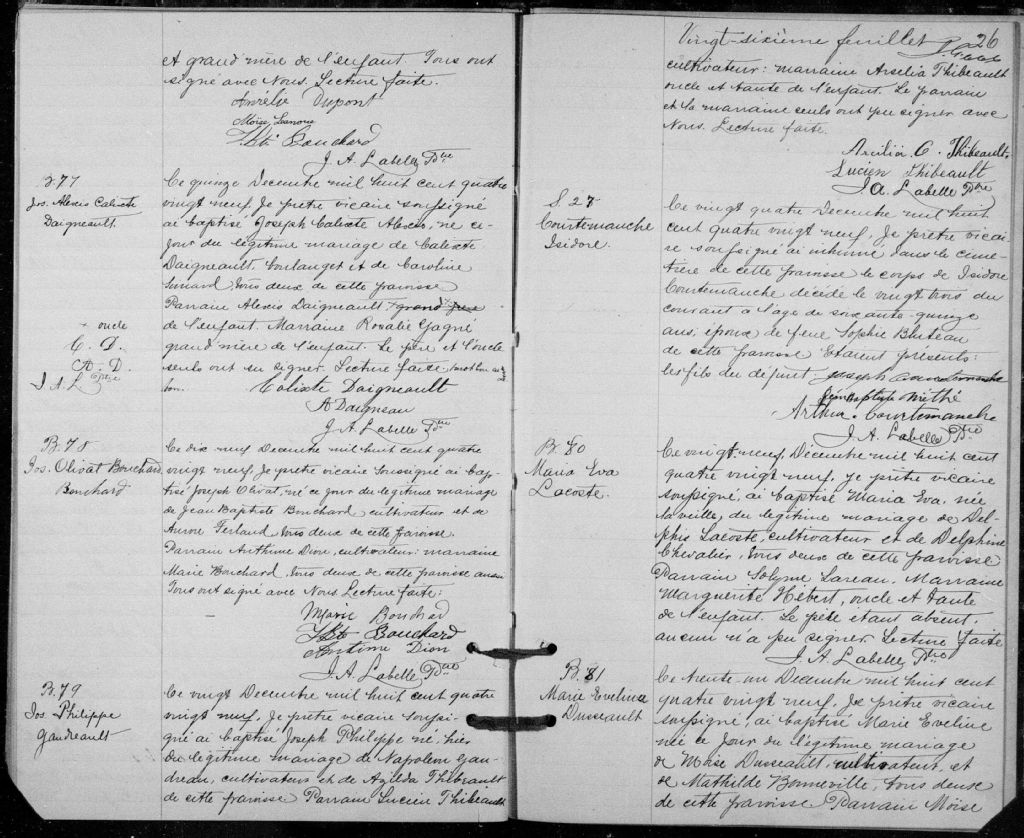 et grand'mère de l'enfant. Tous ont
signé avec Nous. Lecture faite.
Aurélie Dupont
Moïse
J. Bte Bouchard
J. A. Labelle Ptre
B. 77
Jos. Alexis Calixte
Daigneault.
Ce quinze Decembre mil huit cent quatre
vingt neuf. Je prêtre vicaire soussigné
ai baptisé Joseph Calixte Alexis, né ce
jour du légitime mariage de Calixte
Daigneault, boulanger et de Caroline
tous deux de cette paroisse
Parrain Alexis Daigneault + grand père
de l'enfant. Marraine Rosalie Gagné
grand mère de l'enfant. Le père et l'oncle
seuls ont su signer. Lecture faite.
bon.
+ oncle
C. D.
A. D.
J. A. L. Ptre
Calixte Daigneault
A Daigneau
J. A. Labelle Ptre
B. 78
Jos. Olivat Bouchard
Bouchard
Ce dix neuf Decembre mil huit cent quatre
vingt neuf. Je prêtre vicaire soussigné ai bap-
tisé Joseph Olivat, né ce jour du légitime mariage
de Jean Baptiste Bouchard cultivateur et de
Aurore Ferland, tous deux de cette paroisse
Parrain Anthime Dion, cultivateur: marraine
Marie Bouchard, tous deux de cette paroisse aussi
Tous ont signé avec Nous Lecture faite:
Marie Bouchard
J Bte Bouchard
Antime Dion
J. A. Labelle Ptre
B. 79
Jos. Philippe
Gaudreault
Ce vingt Decembre mil huit cent quatre
vingt neuf. Je prêtre vicaire soussi-
gné ai baptisé Joseph Philippe né hier
du légitime mariage de Napoleon Gau-
dreau, cultivateur et de Azilda Thibeault
de cette paroisse Parrain Lucien Thibeault
Vingt-sixième feuillet 26
cultivateur: marraine Arsilia Thibeault
oncle et tante de l'enfant. Le parrain
et la marraine seuls ont pu signer avec
Nous. Lecture faite.
Arcilia C. Thibeault.
Lucien Thibeault
J A. Labelle Ptre
S 27
Courtemanche
Isidore.
Ce vingt quatre Decembre mil huit
cent quatre vingt neuf. Je prêtre vicai-
re soussigné ai inhumé dans le cime-
tière de cette paroisse le corps de Isidore
Courtemanche décédé le vingt trois du
courant à l'age de soixante-quinze
ans, époux de feue Sophie Bluteau
de cette paroisse Etaient présents:
les fils du défunt. Joseph Courtemanche
Jean Baptiste Methé
Arthur. Courtemanche
J. A. Labelle Ptre
B. 80
Maria Eva
Lacoste.
Ce vingt neuf Decembre mil huit cent
quatre vingt neuf, je prêtre vicaire
soussigné, ai baptisé Maria Eva, née
la veille, du legitime mariage de Del-
phis Lacoste, cultivateur et de Delphine
Chevalier, tous deux de cette paroisse
Parrain Solyme Lareau. Marraine
Marguerite Hébert, oncle et tante
de l'enfant. Le père étant absent,
aucun n'a pu signer. Lecture faite
J. A. Labelle Ptre
B. 81
Marie Evelina
Dusseault
Ce trente-un Decembre mil huit cent
quatre vingt neuf, Je prêtre vicaire
soussigné, ai baptisé Marie Eveline
née ce jour du légitime mariage
de Moïse Dusseault, cultivateur, et
de Mathilde Bonneville, tous deux
de cette paroisse Parrain Moïse